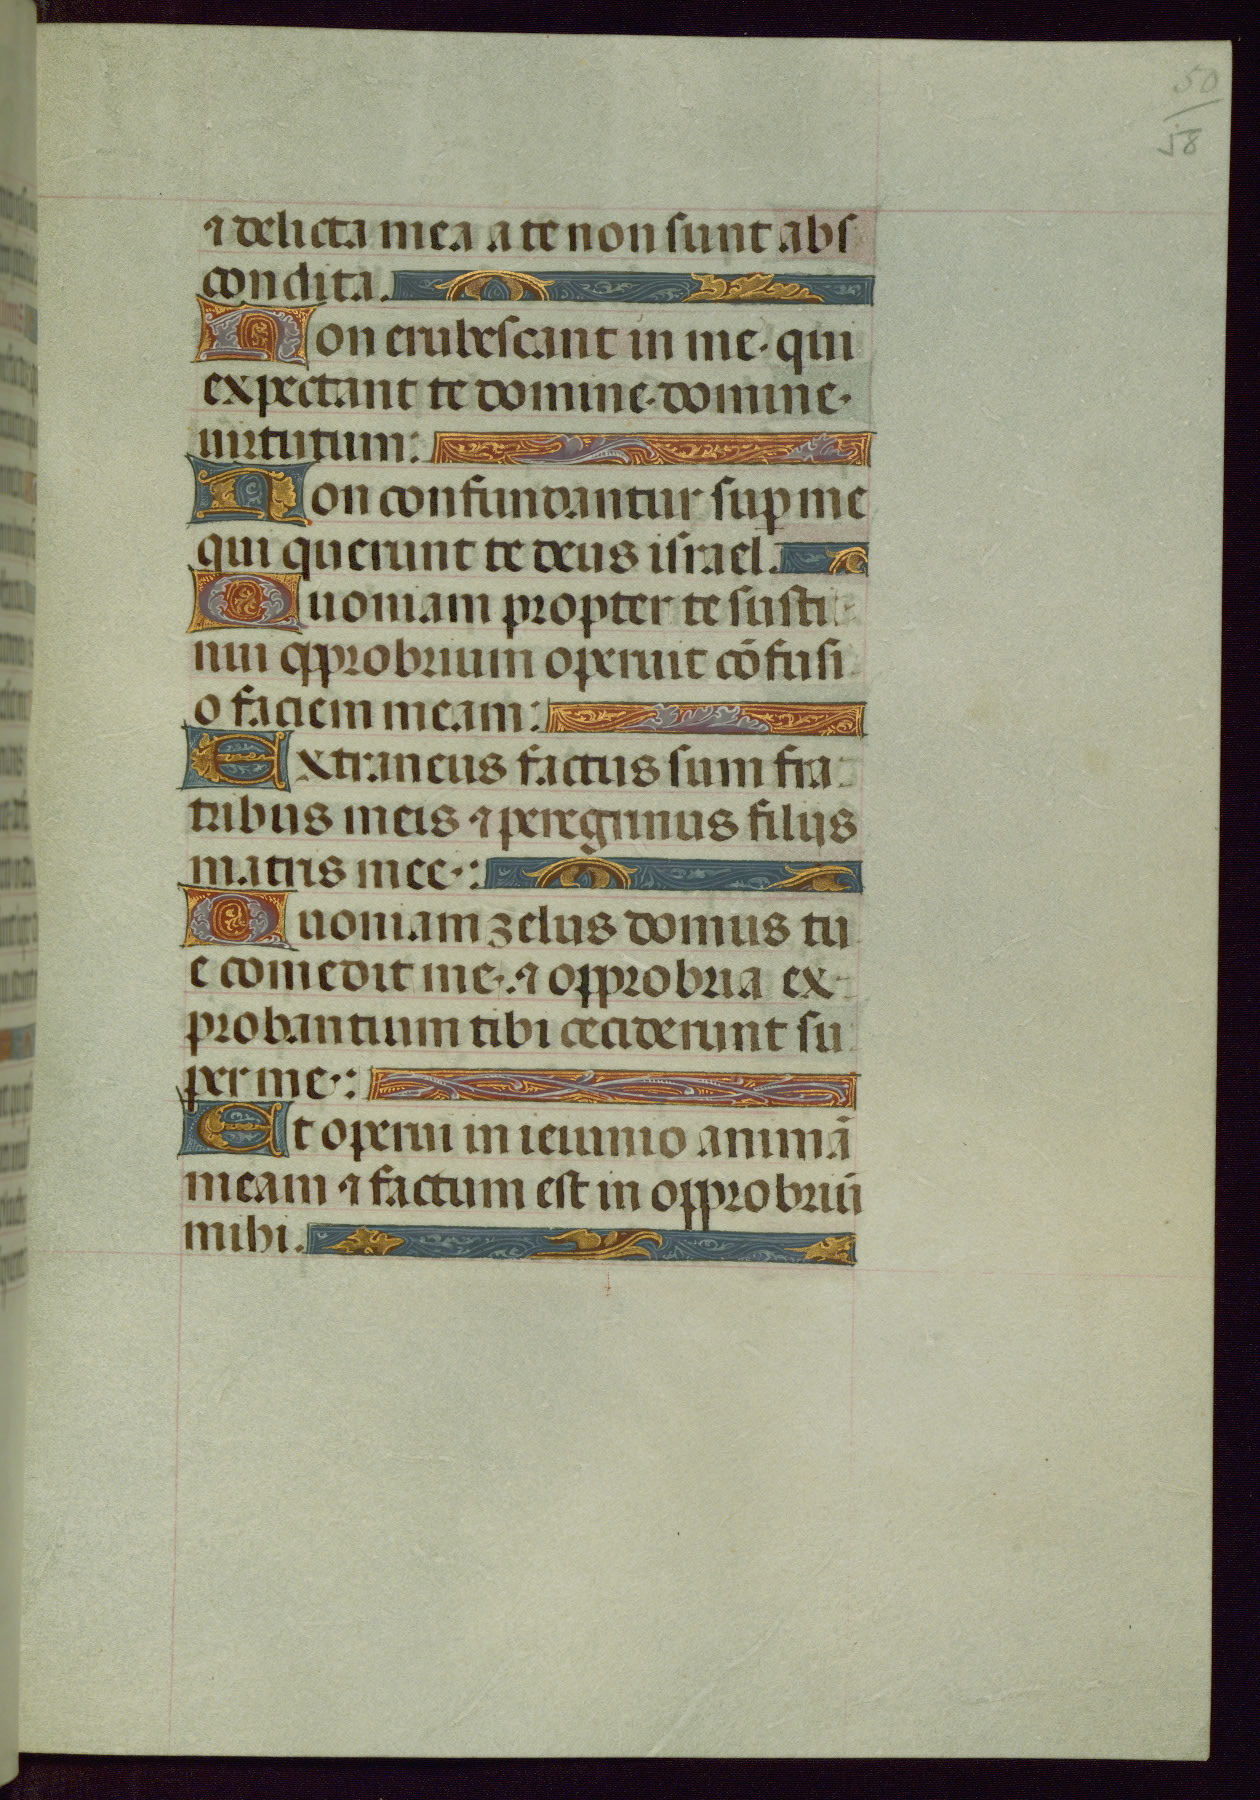 50
58
⁊ delicta mea a te non sunt abs
condita.
Non erubescant in me· qui
expectant te domine· domine·
uirtutum:
Non confundantur sup me
qui querunt te deus israel.
Quoniam propter te susti
nui opprobrium operuit cōfusi
o faciem meam:
Extraneus factus sum fra
tribus meis ⁊ peregrinus filijs
matris mee·:
Quoniam zelus domus tu
e comedit me·.⁊ opprobria ex-
probantium tibi ceciderunt su
per me·:
Et operui in ieiunio animā
meam ⁊ factum est in opprobriū
mihi.